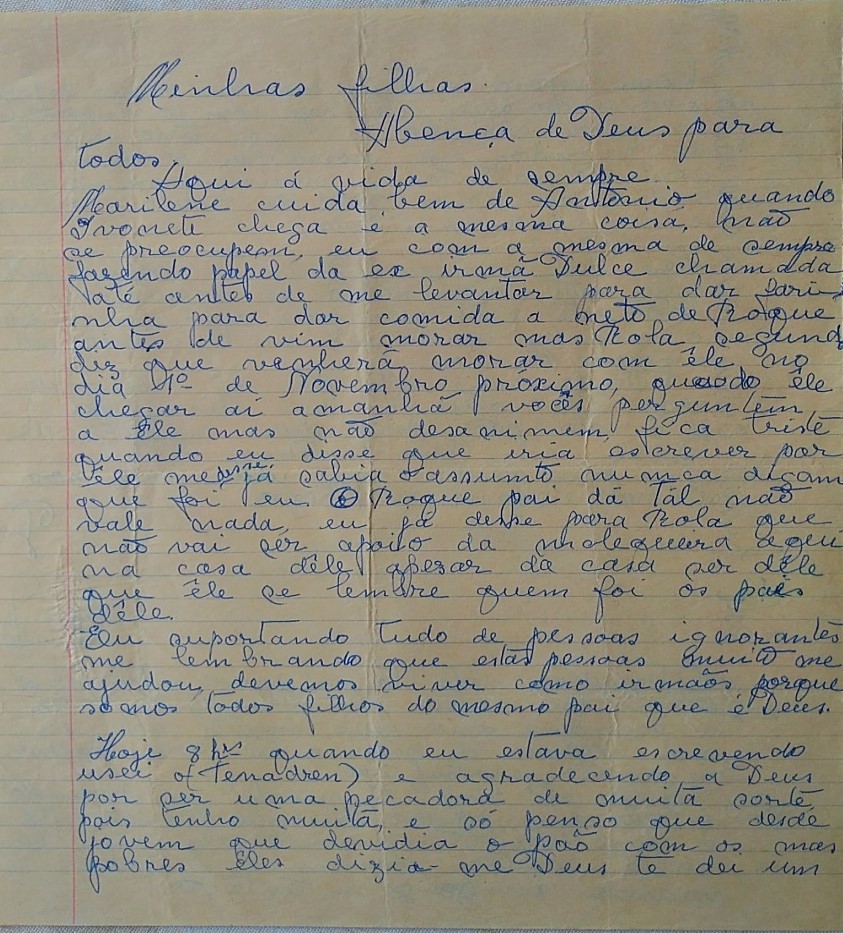 Minhas filhas.
Abença de Deus para
todos,
Aqui á vida de sempre.
Marilene cuida bem de Antônio quando
Ivonete chega é a mesma coisa, não
se preocupem, eu com a mesma de sempre
fazendo papel da ex irmã Dulce chamada
até antes de me levantar para dar fari-
nha para dar comida a neto de Roque
antes de vim morar mas Rola segund
diz que venherá morar com êle no
dia 1º de Novembro próximo, quando êle
chegar aí amanhã vocês perguntem
a êle mas não desanimem, fica triste
quando eu disse que iria escrever por
êle me disse já sabia o assunto nunca digam
que foi eu. O Roque pai da tal não
vale nada, eu já desse para Rola que
não vai ser apoio da molequera aqui
na casa dêle apezar da casa ser dêle
que êle se lembre quem foi os pais
dêle.
Eu suportando tudo de pessoas ignorantes
me lembrando que estas pessoas muito me
ajudou, devemos viver como irmãos porque
somos todos filhos do mesmo pai que é Deus.
Hoje 8 hrs quando eu estava escrevendo
usei o (Tenadren) e agradecendo a Deus
por ser uma pecadora de muita sorte
pois tenho muita, e só penso que desde
jovem que devidia o pão com os mas
pobres êles dizia-me Deus te dei um